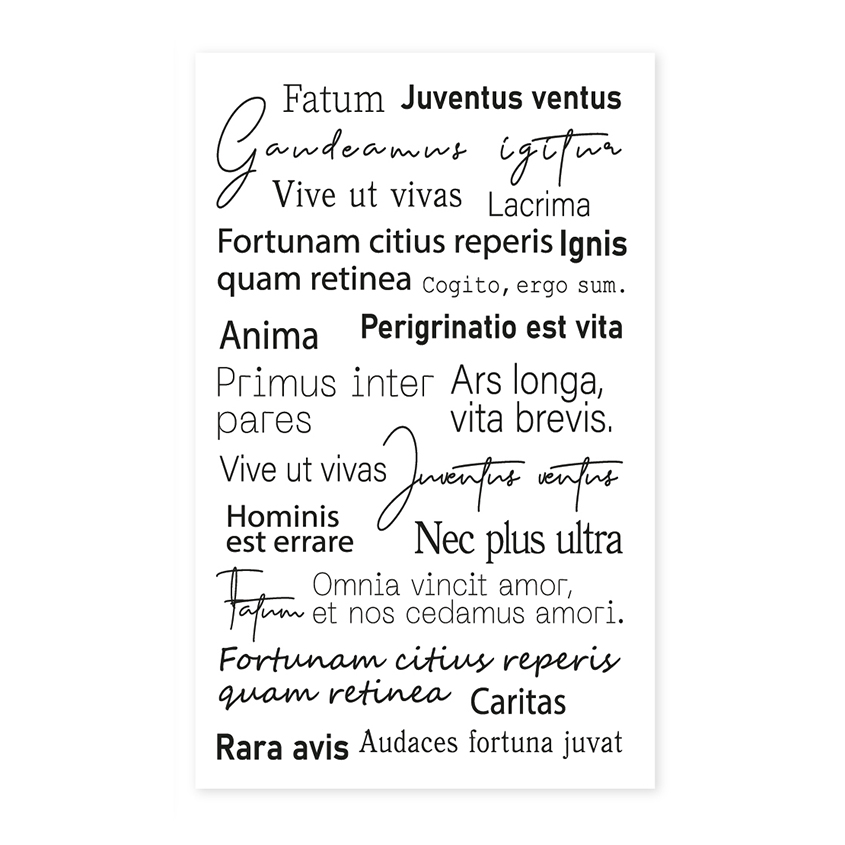 Fatum Juventus ventus
Gaudeamus igitur
Vive ut vivas Lacrima
Fortunam citius reperis Ignis
quam retinea Cogito, ergo sum.
Anima Perigrinatio est vita
Primus inter
pares
Ars longa,
vita brevis.
Vive ut vivas Juventus ventus
Hominis
est errare
Nec plus ultra
Fatum
Omnia vincit amor,
et nos cedamus amori.
Fortunam citius reperis
quam retinea Caritas
Rara avis Audaces fortuna juvat